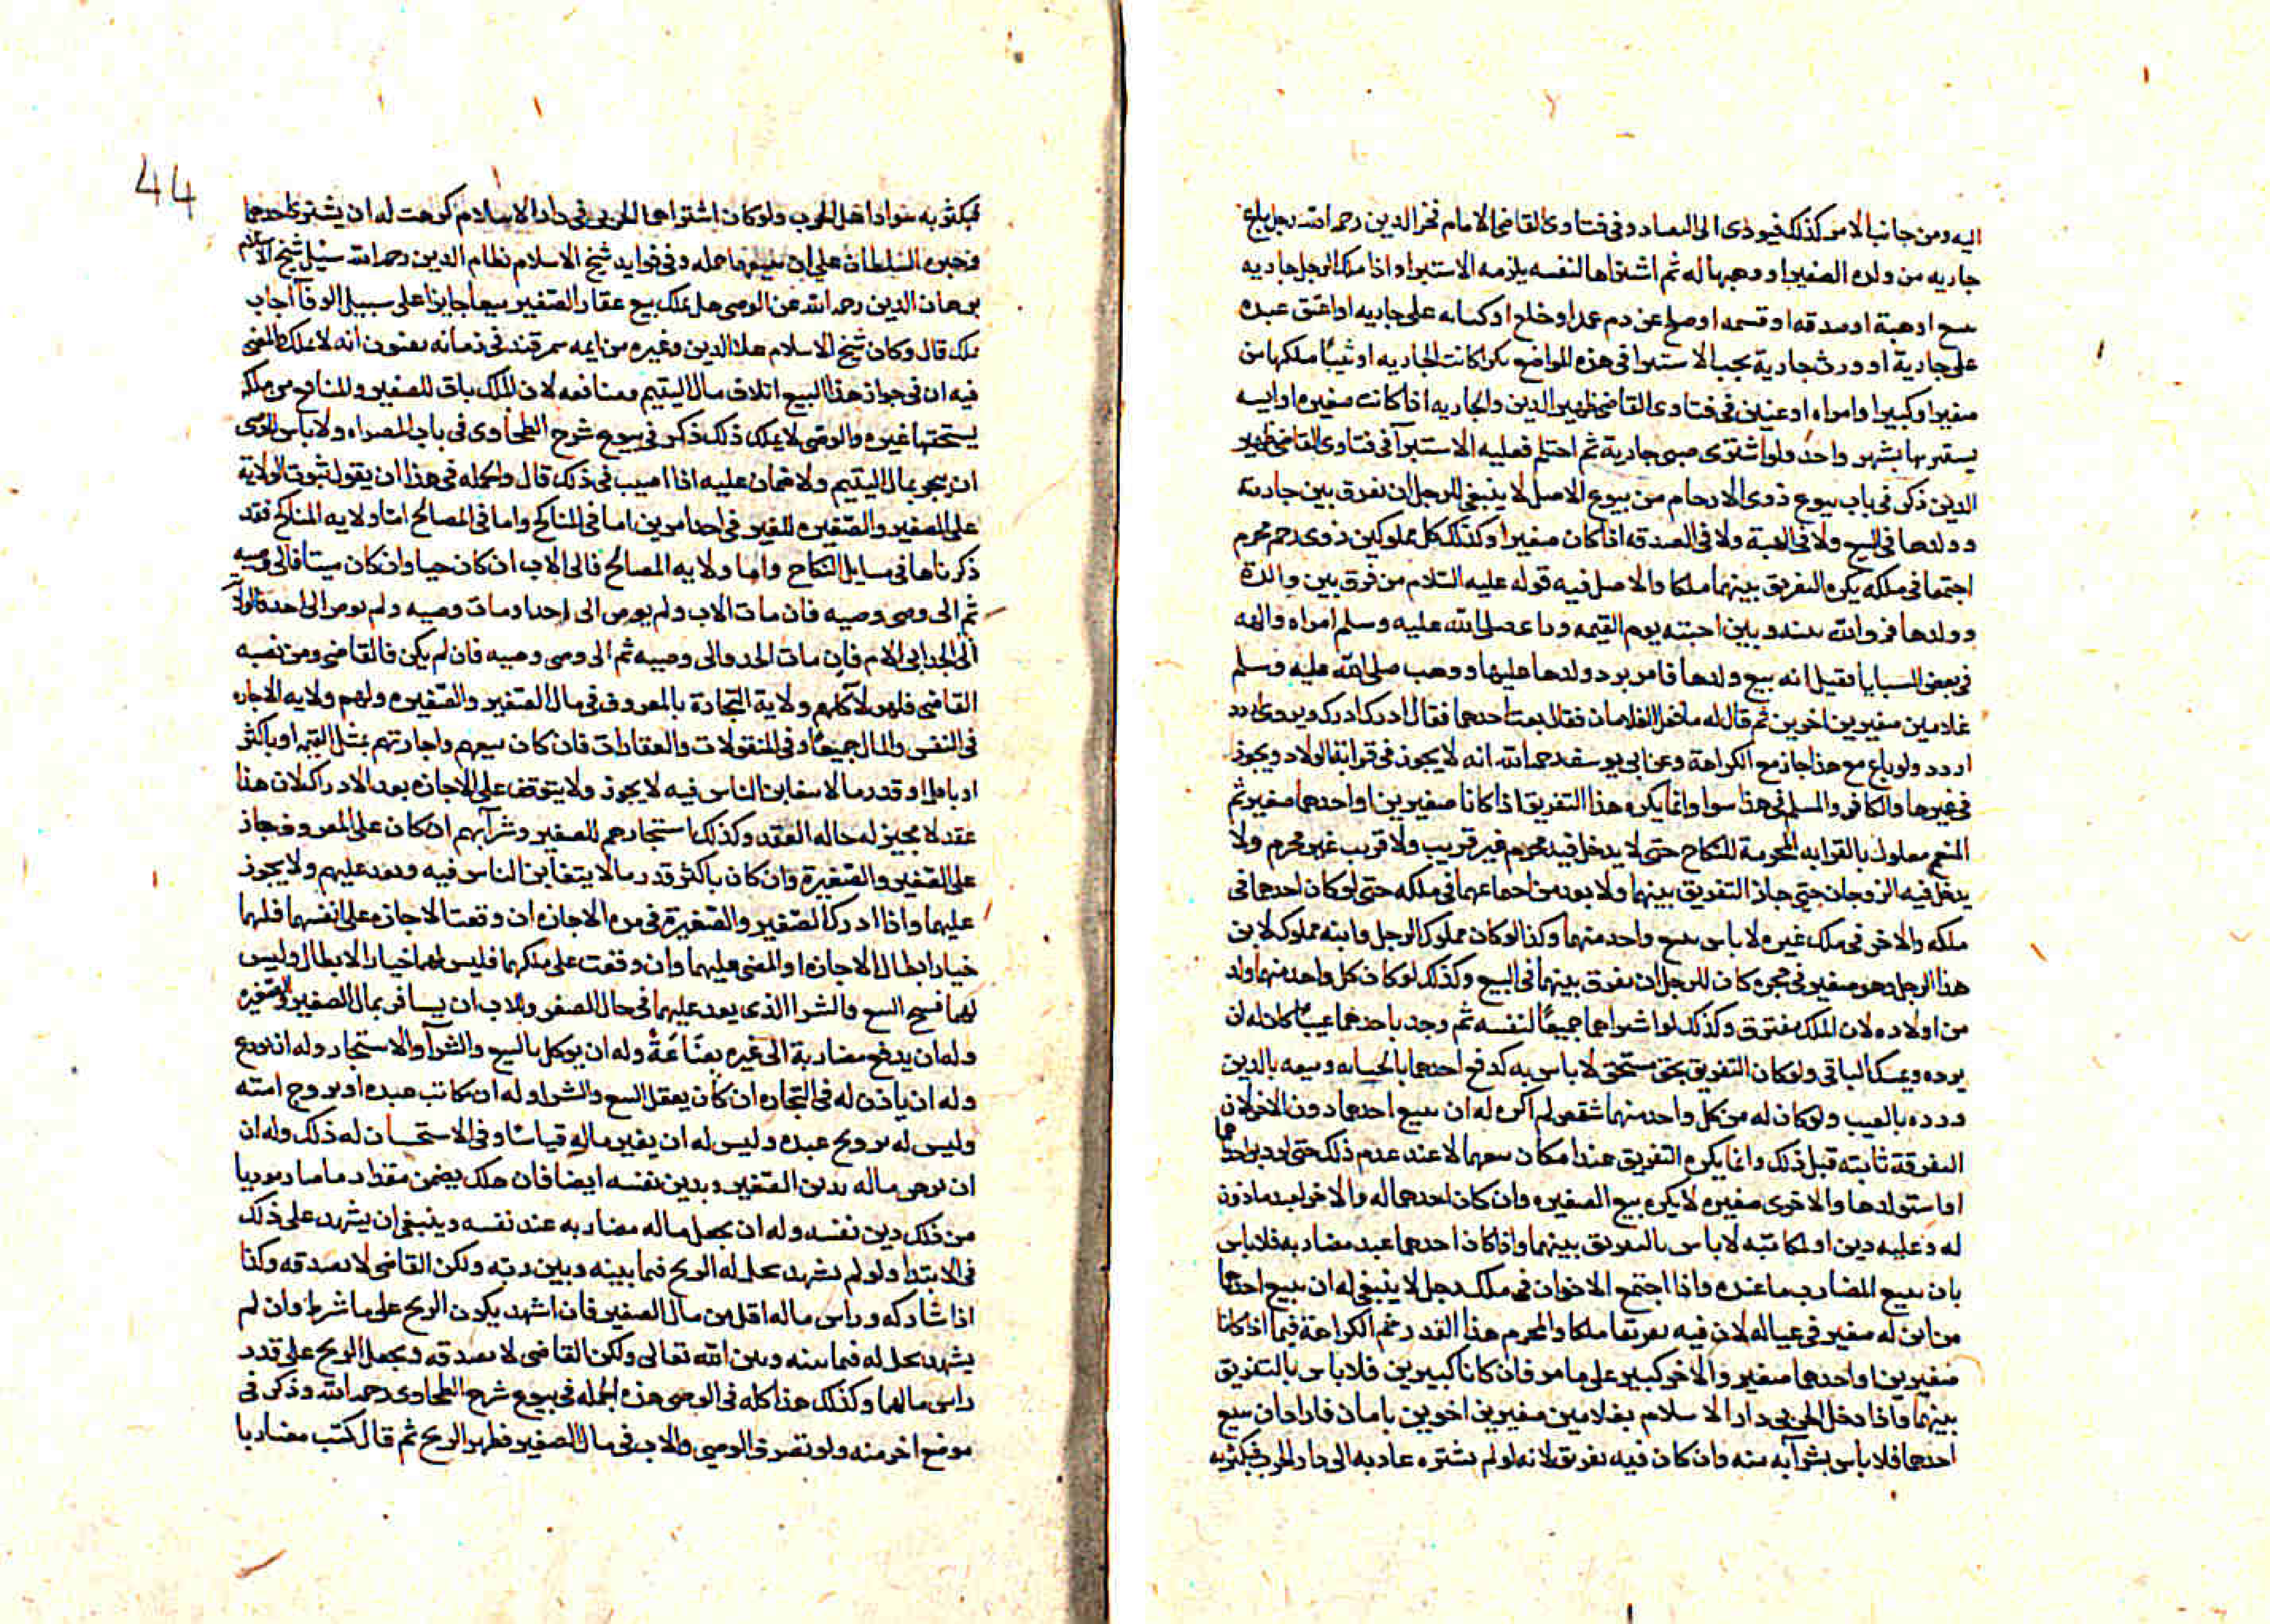 اليه ومن جانب الامر كذلك فيودى الى الفساد وفى فتاوى القاضى الامام فخر الدين رحمه الله رجل باع
جاريه من ولده الصغير او وهبها له ثم اشتراها لنفسه يلزمه الاستبرا واذا ملك الرجل جاريه
ببيع او هبة او صدقه او قسمه او صلح عن دم عمد او خلع او كتابه على جاريه او اعتق عبده
على جارية او ورث جارية يجب الاستبرا فى هذه المواضع بكرا كانت الجاريه او ثيبا ملكها من
صغير او كبير او امراه او عنين فى فتاوى القاضى ظهير الدين والجاريه اذا كانت صغيره او ايسه
يستبريها بشهر واحد ولو اشترى صبى جارية ثم احتلم فعليه الاستبرآ فى فتاوى القاضى ظهير
الدين ذكر فى باب بيوع ذوى الارحام من بيوع الاصل لا ينبغى للرجل ان يفرق بين جارية
وولدها فى البيع ولا فى الهبة ولا فى الصدقه اذا كان صغيرا وكذلك كل مملوكين ذوى رحم محرم
اجتمعا فى ملكه يكره التفريق بينهما ملكا والاصل فيه قوله عليه السلام من فرق بين والدة
وولدها فرق الله بينه وبين احبته يوم القيمه وراى صلى الله عليه وسلم امراه والهه
فى بعض السبايا فقيل انه بيع ولدها فامر برد ولدها عليها ووهب صلى الله عليه وسلم
غلامين صغيرين اخوين ثم قال له ما فعل الغلامان فقال بعت احدهما فقال ادرك ادرك ويروى اردد
اردد ولو باع مع هذا جاز مع الكراهة وعن ابى يوسف رحمه الله انه لا يجوز فى قرابة الولاد ويجوز
فى غيرها والكافر والمسلم فى هذا سوا وانما يكره هذا التفريق اذا كانا صغيرين او احدهما صغير ثم
المنع معلول بالقرابه المحرمة للنكاح حتى لا يدخل فيه محرم غير قريب ولا قريب غير محرم ولا
يدخل فيه الزوجان حتى جاز التفريق بينهما ولا بد من اجتماعهما فى ملكه حتى لو كان احدهما فى
ملكه والاخر فى ملك غيره لا باس ببيع واحد منهما وكذا لو كان مملوك الرجل وابنه مملوك لابن
هذا الرجل وهو صغير فى حجره كان للرجل ان يفرق بينهما فى البيع وكذلك لو كان كل واحد منهما ولد
من اولاده لان الملك مفترق وكذلك لو اشتراهما جميعا لنفسه ثم وجد باحدهما عيبا كان له ان
يرده ويمسك الباقى ولو كان التفريق بحق مستحق لا باس به كدفع احدهما بالجنايه وبيعه بالدين
ورده بالعيب ولو كان له من كل واحد منهما شقص لم اكره له ان يبيع احدهما دون الاخر لان
التفرقة ثابته قبل ذلك وانما يكره التفريق عند امكان بيعهما لا عند عدم ذلك حتى لو دبر احدهما
او استولدها والاخرى صغيره لا يكره بيع الصغيره وان كان احدهما له والاخر لعبد ماذون
له وعليه دين او لمكاتبه لا باس بالتفريق بينهما واذا كان احدهما عبد مضاربه فلا باس
بان يبيع المضارب ما عنده واذا اجتمع الاخوان فى ملك رجل لا ينبغى له ان يبيع احدهما
من ابن له صغير فى عياله لان فيه تفريقا ملكا والمحرم هذا القدر ثم الكراهة فيما اذا كانا
صغيرين او احدهما صغير والاخر كبير على ما مر فان كانا كبيرين فلا باس بالتفريق
بينهما واذا دخل الحربى دار الاسلام بغلامين صغيرين اخوين بامان فاراد ان يبيع
احدهما فلا باس بشرآيه منه وان كان فيه تفريق لانه لو لم يشتره عاد به الى دار الحرب فيكثر به
44
فيكثر به سواد اهل الحرب ولو كان اشتراهما الحربى فى دار الاسلام كرهت له ان يشترى احدهما
فيجبره السلطان على ان يبيعهما جمله وفى فوايد شيخ الاسلام نظام الدين رحمه الله سئل شيخ الاسلام
برهان الدين رحمه الله عن الوصى هل يملك بيع عقار الصغير بيعا جايزا على سبيل الوفآ اجاب
يملك قال وكان شيخ الاسلام هذا الدين وغيره من ايمه سمرقند فى زمانه يفتون انه لا يملك والمعنى
فيه ان فى جواز هذا البيع اتلاف مال اليتيم ومنافعه لان الملك باق للصغير والمنافع من ملكه
يستحقها غيره والوصى لا يملك ذلك ذكر فى بيوع شرح الطحاوى فى باب المصراه ولا باس للوصى
ان يتجر بمال اليتيم ولا ضمان عليه اذا اصيب فى ذلك قال والجمله فى هذا ان يقول ثبوت الولاية
على الصغير والصغيره للغير فى احد امرين اما فى المناكح واما فى المصالح اما ولايه المناكح فقد
ذكرناها فى مسايل النكاح واما ولايه المصالح فالى الاب ان كان حيا وان كان ميتا فالى وصيه
ثم الى وصى وصيه فان مات الاب ولم يوص الى احد او مات وصيه ولم يوص الى احد فالولاية
الى الجد ابى الاب فان مات الجد والى وصيه ثم الى وصى وصيه فان لم يكن فالقاضى ومن نصبه
القاضى فلهولآ كلهم ولاية التجارة بالمعروف فى مال الصغير والصغيره ولهم ولايه الاجاره
فى النفس والمال جميعا وفى المنقولات والعقارات فان كان بيعهم واجارتهم بمثل القيمه او باكثر
او باقل او قدر ما لا يتغابن الناس فيه لا يجوز ولا يتوقف على الاجازه بعد الادراك لان هذا
عقد لا مجيز له حاله العقد وكذلك استيجارهم للصغير وشرآيهم ان كان على المعروف جاز
على الصغير والصغيرة وان كان باكثر قدر ما لا يتغابن الناس فيه وينفذ عليهم ولا يجوز
عليهما واذا ادرك الصغير والصغيرة فى مده الاجاره ان وقعت الاجازه على انفسهما فلهما
خيار ابطال الاجاره او المضى عليهما وان وقعت على ملكهما فليس لهما خيار الابطال وليس
لهما فسخ البيع والشرا الذى ينفذ عليهما فى حال الصغر وللاب ان يسافر بمال الصغير والصغيره
وله ان يدفع مضاربة الى غيره بضاعة وله ان يوكل بالبيع والشرآ والاستيجار وله ان يودع
وله ان ياذن له فى التجاره ان كان يعقل البيع والشرا وله ان يكاتب عبده او يزوج امته
وليس له تزويج عبده وليس له ان يعير ماله قياسا وفى الاستحسان له ذلك وله ان
ان يرهن ماله بدين الصغير وبدين نفسه ايضا فان هلك يضمن مقدار ما صار موديا
من ذلك دين نفسه وله ان يجعل ماله مضاربه عند نفسه وينبغى ان يشهد على ذلك
فى الابتدا ولو لم يشهد يحل له الربح فيما بينه وبين ربه ولكن القاضى لا يصدقه وكذا
اذا شاركه وراس ماله اقل من مال الصغير فان اشهد يكون الربح على ما شرط وان لم
يشهد يحل له فيما بينه وبين الله تعالى ولكن القاضى لا يصدقه ويجعل الربح على قدر
راس مالهما وكذلك هذا كله فى الوصى هذه الجمله فى بيوع شرح الطحاوى رحمه الله وذكر فى
موضع اخر منه ولو تصرف الوصى والاب فى مال الصغير فظهر الربح ثم قال كنت مضاربا